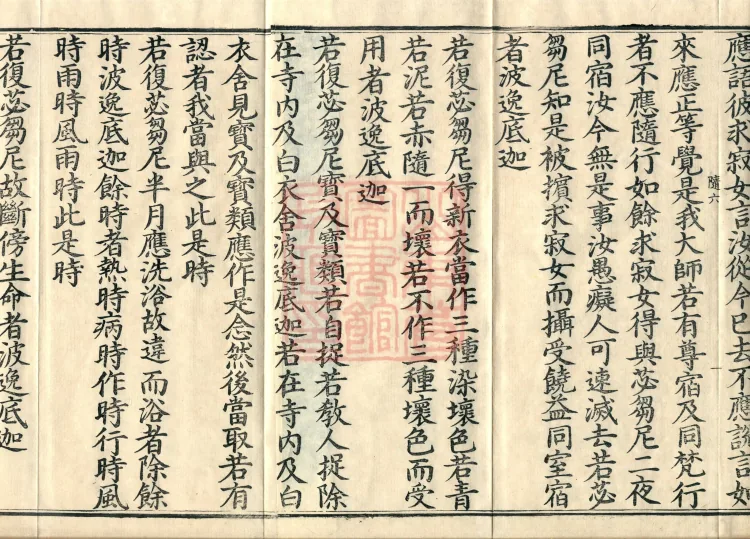 應語彼求寂女言汝從今已去不應說言如
來應正等覺是我大師若有尊宿及同梵行
者不應隨行如餘求寂女得與苾芻尼二夜
同宿汝今無是事汝愚癡人可速滅去若苾
芻尼知是被擯求寂女而攝受饒益同室宿
者波逸底迦
隨六
若復苾芻尼得新衣當作三種染壞色若青
若泥若赤隨一而壞若不作三種壞色而受
用者波逸底迦
若復苾芻尼寶及寶類若自捉若教人捉除
在寺內及白衣舍波逸底迦若在寺內及白
衣舍見寶及寶類應作是念然後當取若有
認者我當與之此是時
若復苾芻尼半月應洗浴故違而浴者除餘
時波逸底迦餘時者熱時病時作時行時風
時雨時風雨時此是時
若復苾芻尼故斷傍生命者波逸底迦